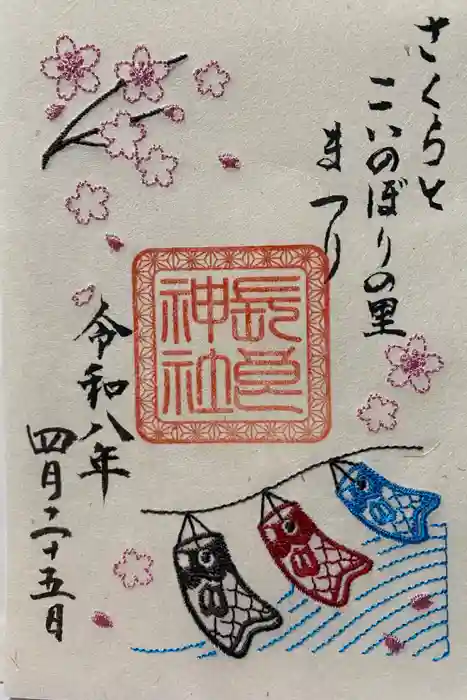 さくらと
こいのぼりの里
まつり
神社
令和八年
四月二十五日